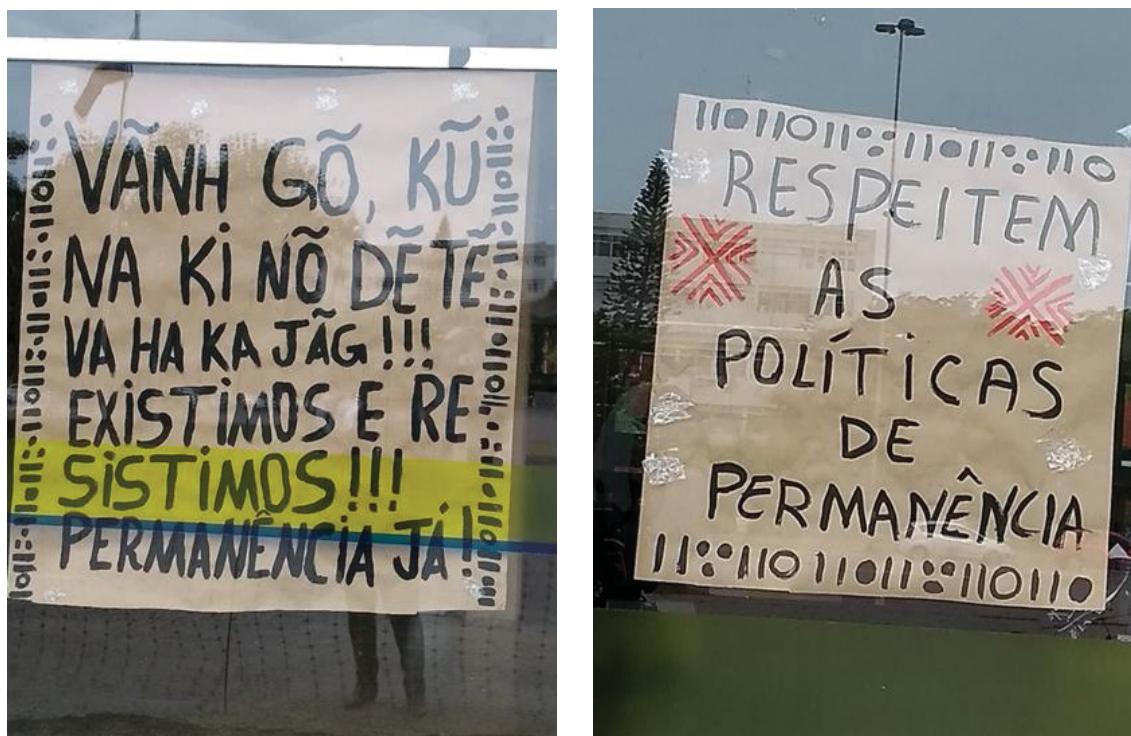 VÃNH GÕ, KŨ
NA KI NÕ DẼ TẼ
VA HA KA JÃG!!!
EXISTIMOS E RE
SISTIMOS!!!
PERMANÊNCIA JÁ!
RESPEITEM
AS
POLÍTICAS
DE
PERMANÊNCIA